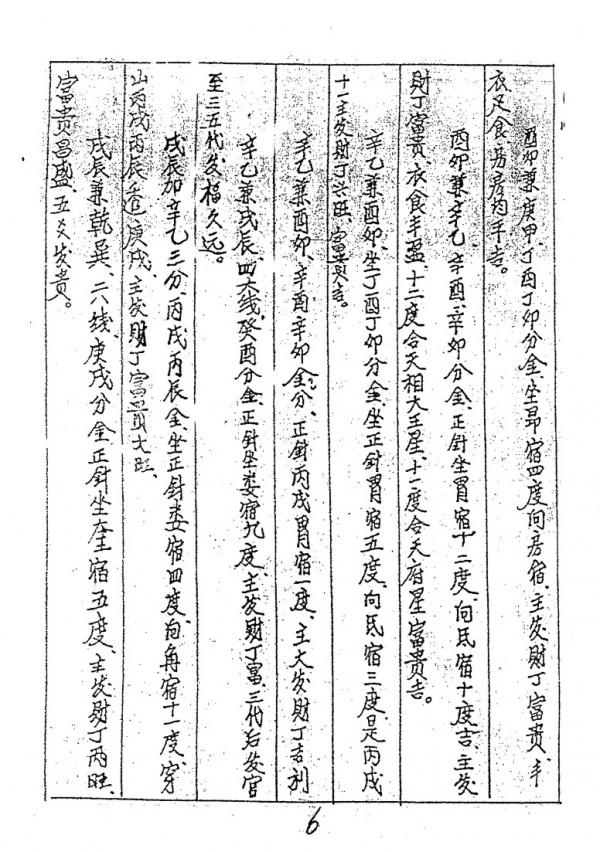 酉卯兼庚甲、丁酉丁卯分金、坐昴宿四度向房宿、主发财丁富贵、丰
衣足食、房房均丰吉。
酉卯兼辛乙、辛酉、辛卯分金、正针坐胃宿十二度、向氐宿十度吉、主发
财丁富贵、衣食丰盈、十二度合天相大王星、十一度合天府星富贵吉。
辛乙兼酉卯、坐丁酉丁卯分金、坐正针胃宿五度、向氐宿三度是丙戌
十一主发财丁兴旺、富贵吉。
辛乙兼酉卯、辛酉辛卯金分、正针丙戌胃宿一度、主大发财丁吉利
辛乙兼戌辰、四大线、癸酉分金、正针坐娄宿九度、主发财丁富、三代后发官
至三五代发福久远。
戌辰加辛乙三分、丙戌丙辰金、坐正针娄宿四度、向角宿十一度、穿
山丙戌丙辰 庚戌、主发财丁富贵大旺、
戌辰兼乾巽、二六线、庚戌分金正针坐奎宿五度、主发财丁两旺、
富贵昌盛、五爻发贵。
6